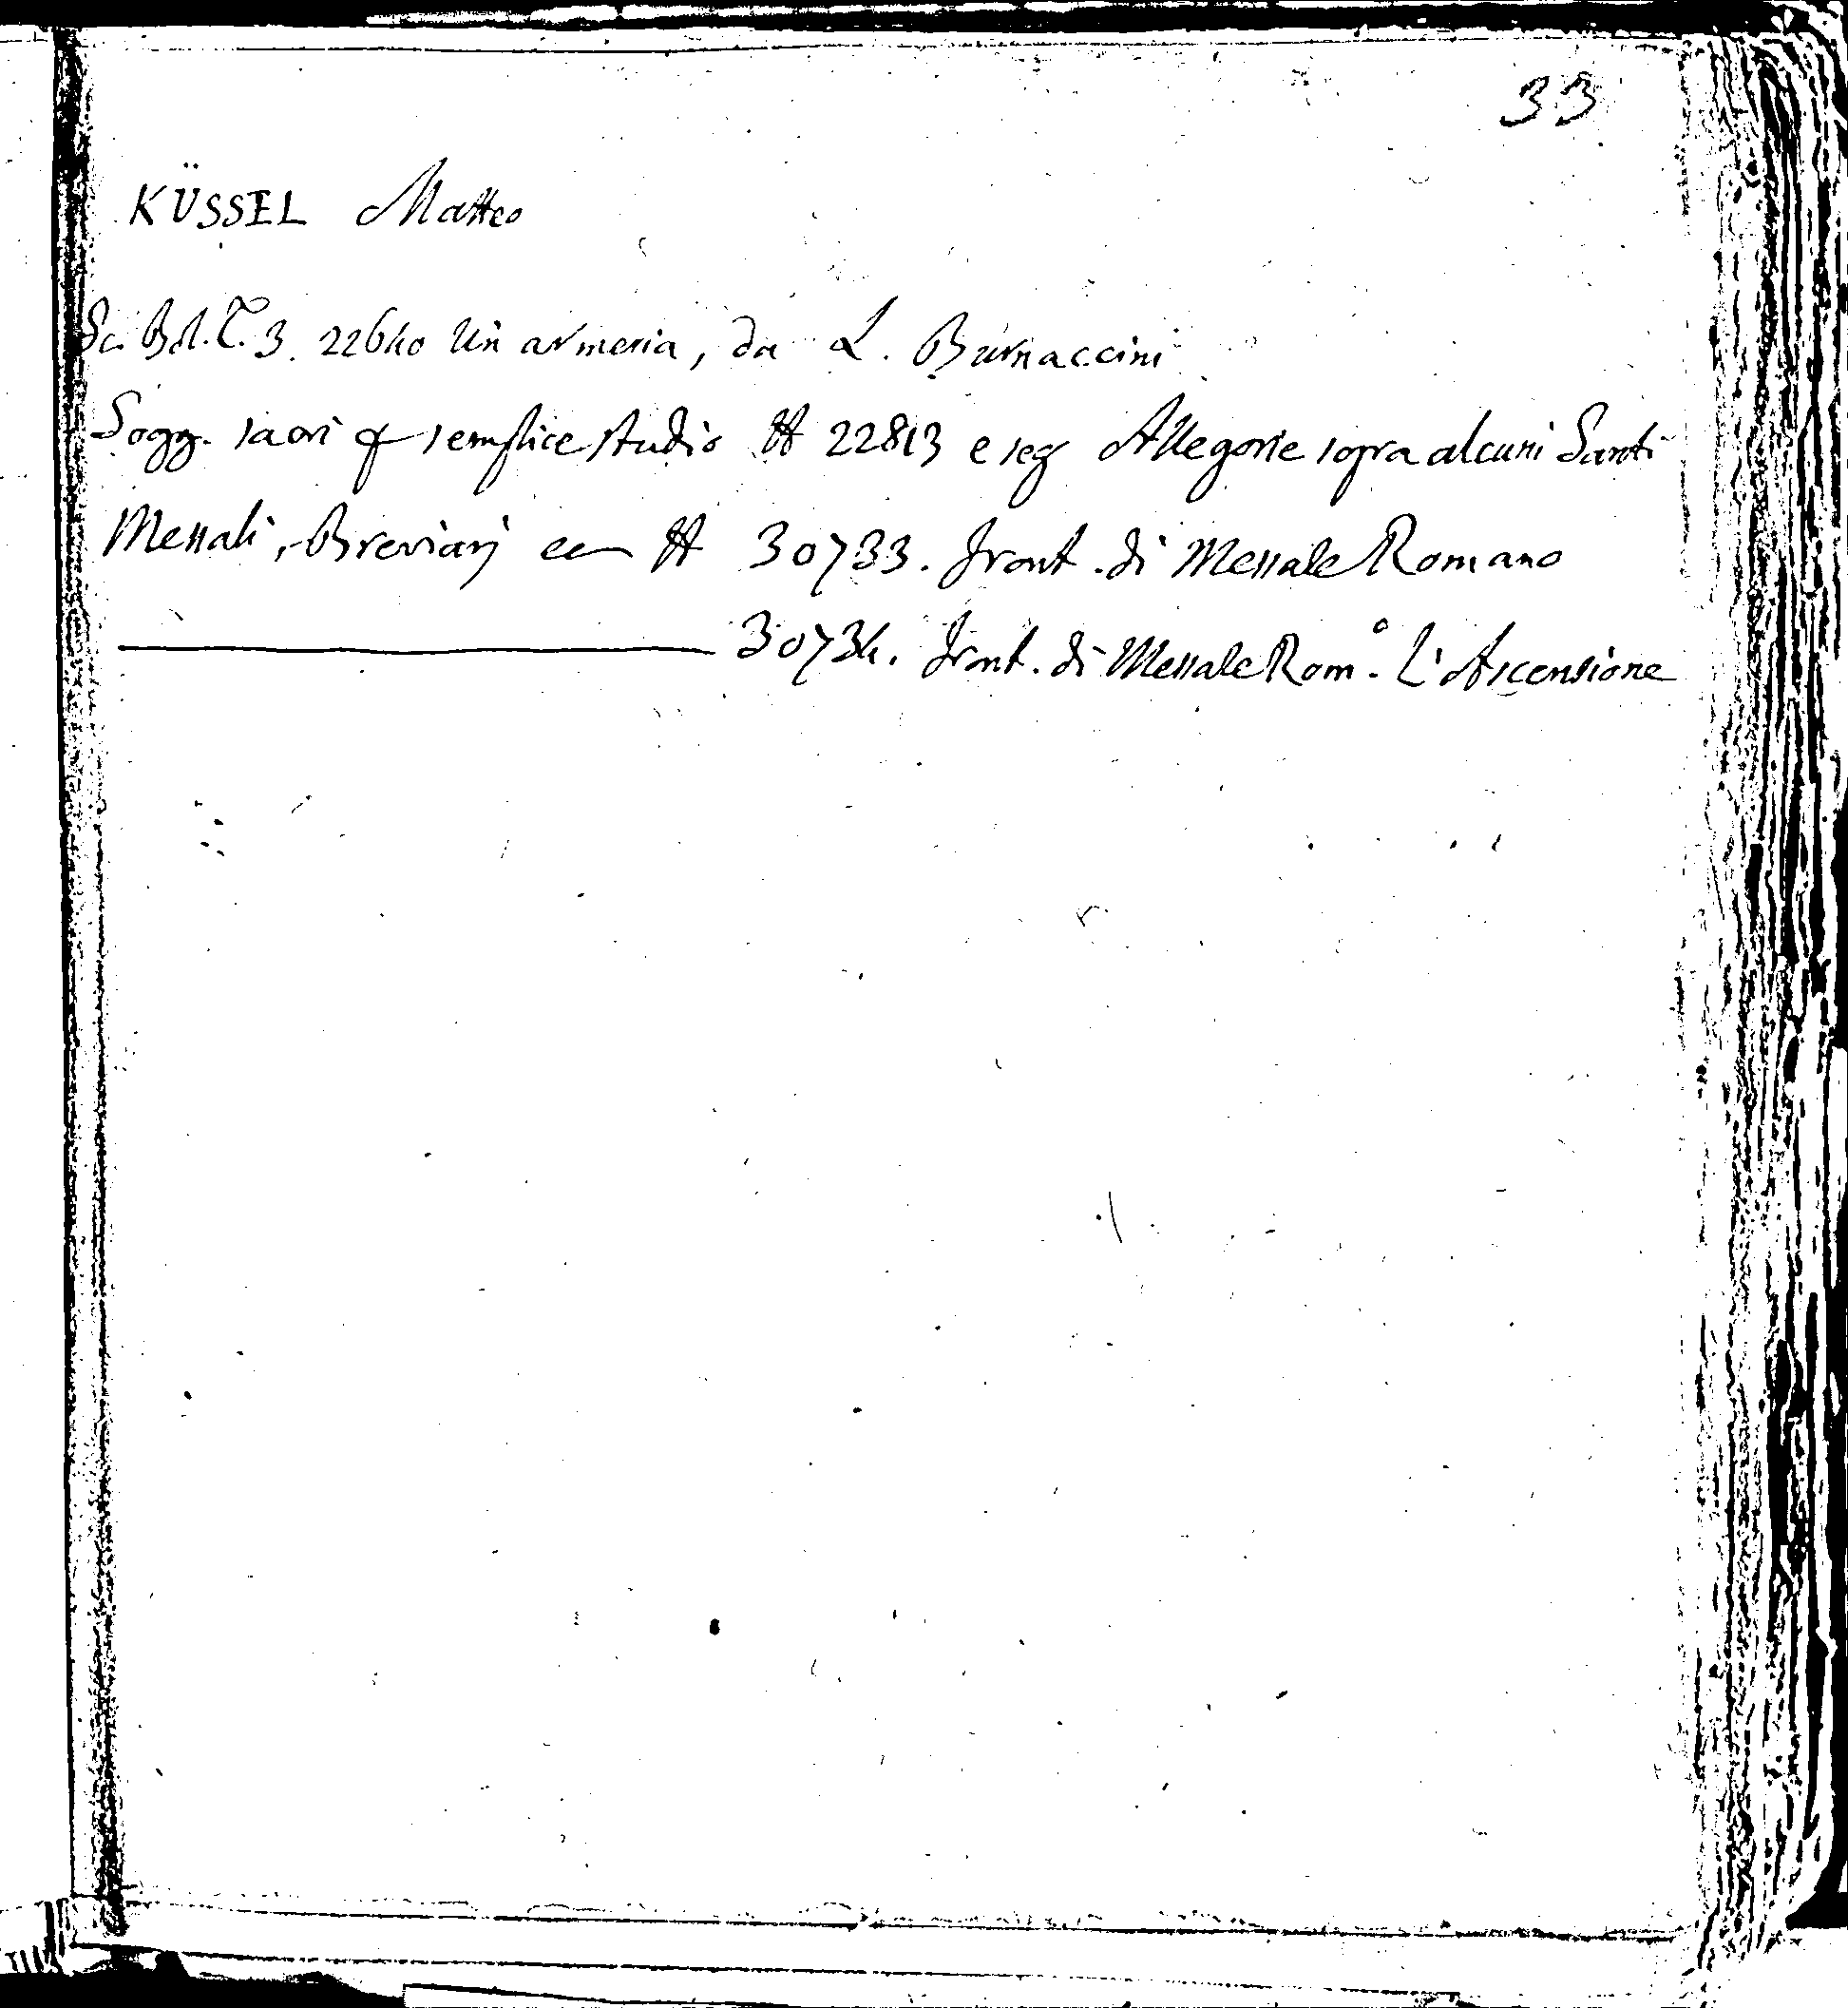 33
KÜSSEL Matteo
Sc. Bol. T. 3. 22640 Un armeria, da L. Burnaccini
Sogg. sacri p semplice studio H 22813 e seg Allegorie sopra alcuni Santi
Messali, Breviarj ec H 30733. front. di Messale Romano
30734. front. di Messale Rom.º L'Ascensione